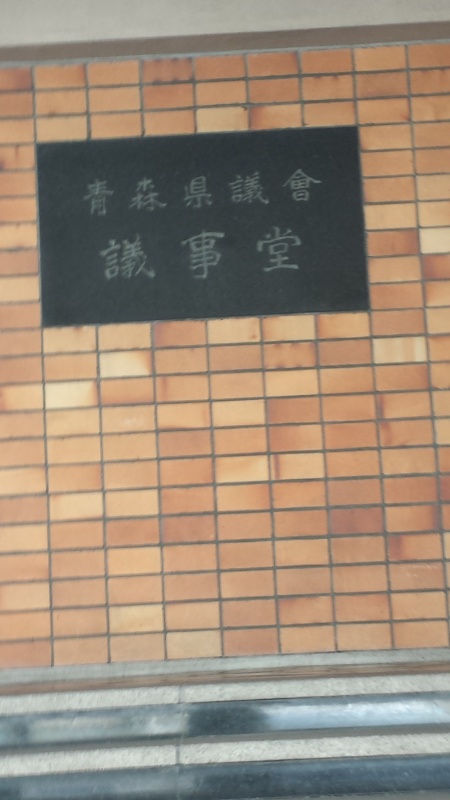 青森県議會
議事堂